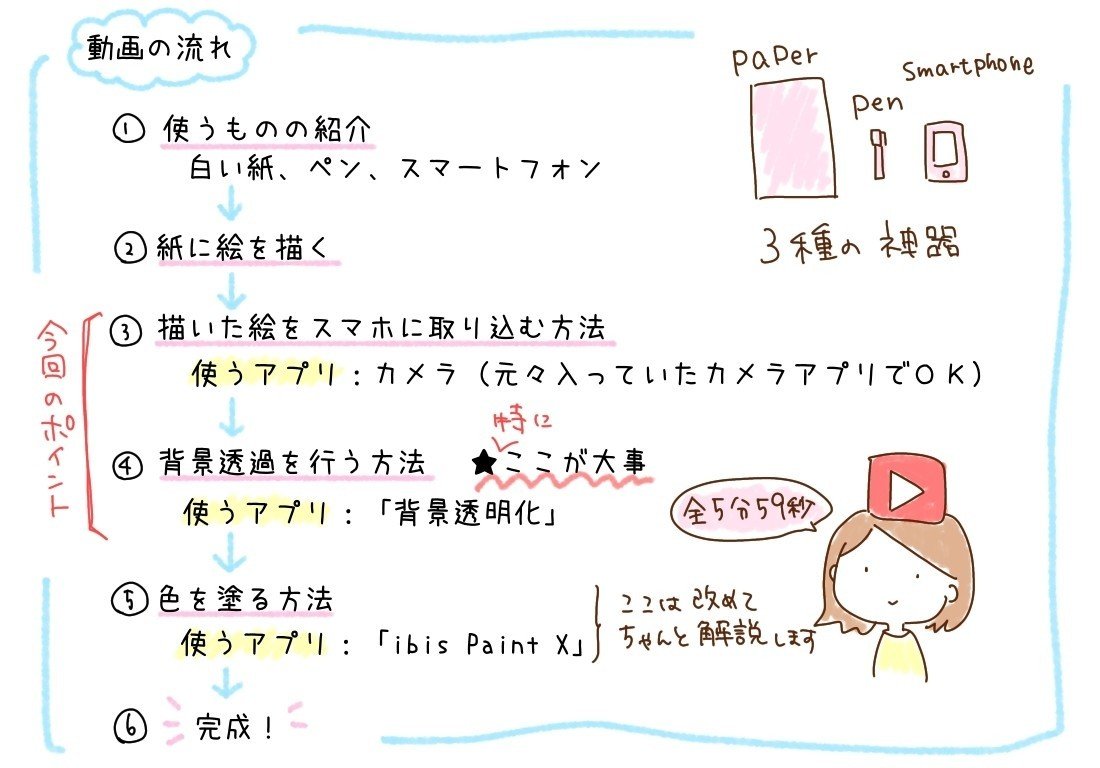 動画の流れ
① 使うものの紹介
白い紙、ペン、スマートフォン
② 紙に絵を描く
③ 描いた絵をスマホに取り込む方法
使うアプリ：カメラ（元々入っていたカメラアプリでOK）
④ 背景透過を行う方法 ★ここが大事
特に
使うアプリ：「背景透明化」
⑤ 色を塗る方法
使うアプリ：「ibis Paint X」
⑥ 完成！
今回のポイント
paper
pen
smartphone
3種の神器
全5分59秒
ここは改めて
ちゃんと解説します